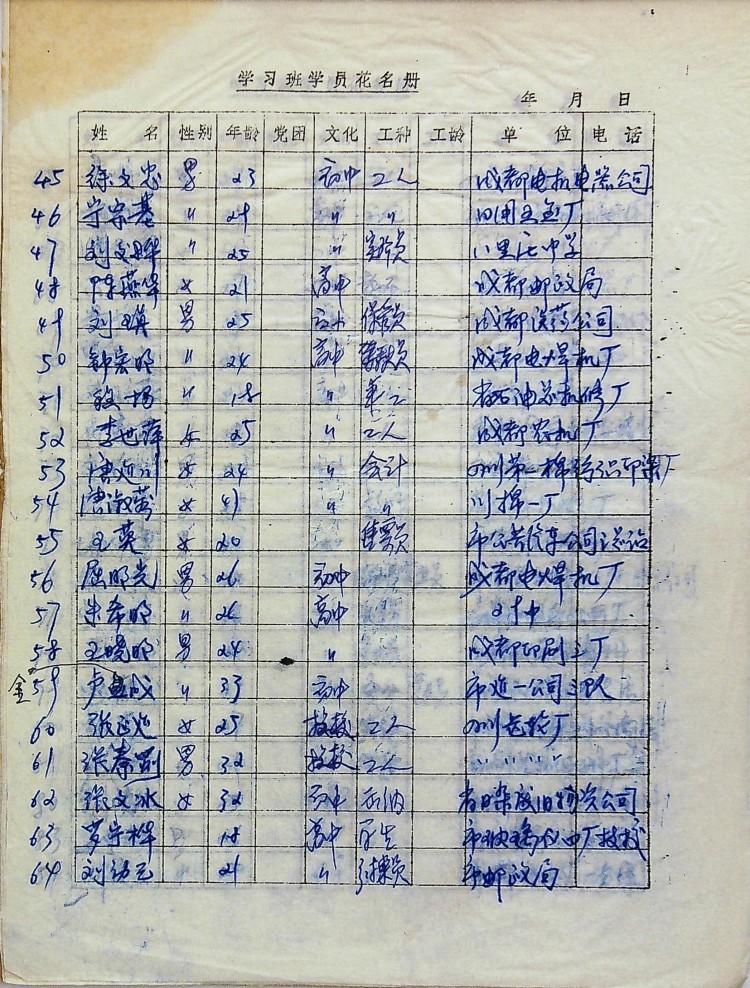 学习班学员花名册
年 月 日
姓 名 性别 年龄 党团 文化 工种 工龄 单 位 电 话
45 徐文忠 男 23 初中 工人 成都电机电器公司
46 宗基 〃 29 〃 〃 厂
47 刘 〃 25 〃 实验员 八里庄中学
48 陈燕华 女 21 高中 成都邮政局
49 刘 男 25 保管员 成都医药公司
50 宏明 〃 24 高中 成都电焊机厂
51 〃 18 〃 省石油总机修厂
52 李世萍 女 25 〃 工人 成都农机厂
53 唐 川 女 24 〃 会计 四川第一棉纺织印染厂
54 唐淑 女 41 〃 〃 川棉一厂
55 王英 女 20 售票员 市公共汽车公司
56 屈明光 男 26 初中 成都电焊机厂
57 朱希明 〃 26 高中 中
58 王晓明 男 24 〃 成都印刷三厂
金 59 卢 成 〃 33 初中 市建一公司三队
60 张 女 25 技校 工人 四川齿轮厂
61 张泰 男 32 技校 工人 〃 〃 〃 〃 〃
62 张文冰 女 32 高中 出纳 省 废旧物资公司
63 罗宇桦 18 高中 学生 市玻璃 四厂技校
64 刘幼 21 〃 市邮政局